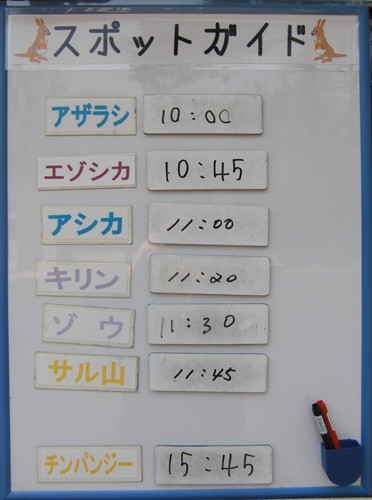 スポットガイド
アザラシ 10:00
エゾシカ 10:45
アシカ 11:00
キリン 11:20
ゾウ 11:30
サル山 11:45
チンパンジー 15:45